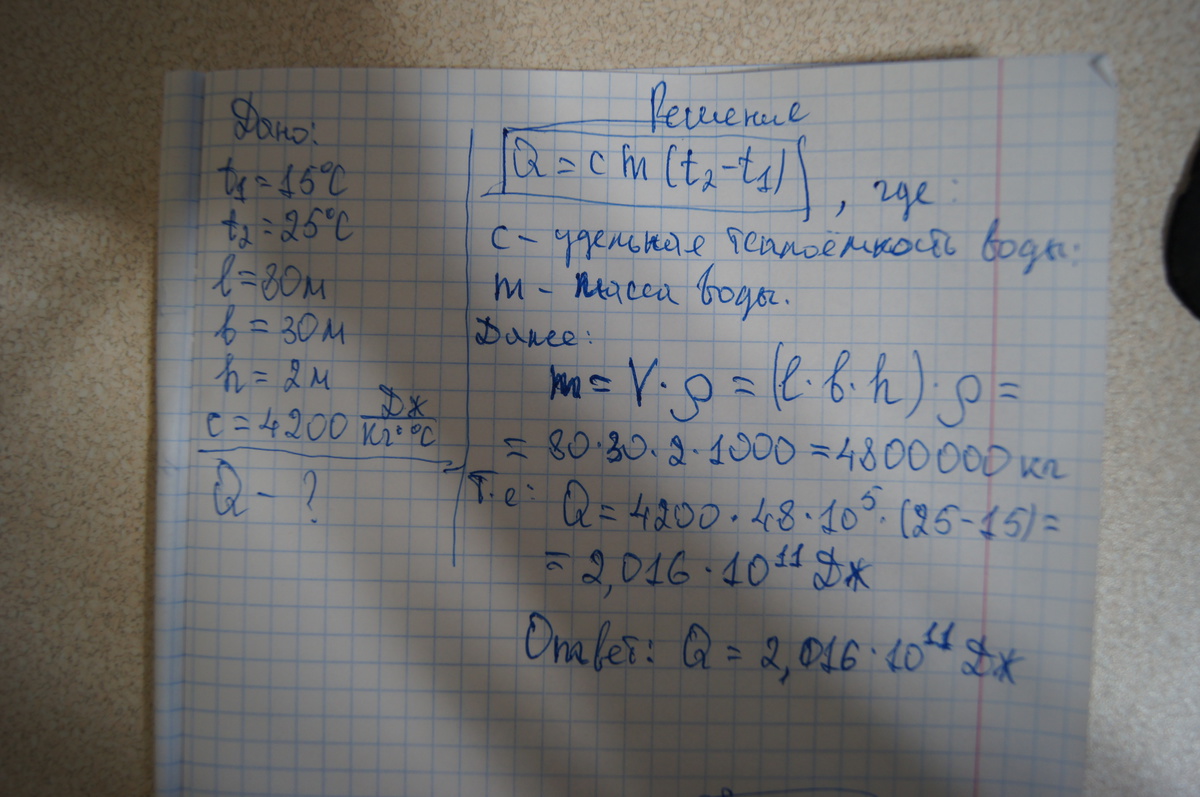 Дано:
t₁=15°C
t₂=25°C
l=80м
b=30м
h=2м
c=4200 Дж/кг·°C
Q-?
Решение
Q=cm(t₂-t₁), где:
c - удельная теплоёмкость воды.
m - масса воды.
Далее:
m=V·ρ=(l·b·h)·ρ=
=80·30·2·1000=4800000кг
Т.е: Q=4200·48·10⁵·(25-15)=
=2,016·10¹¹Дж
Ответ: Q=2,016·10¹¹Дж